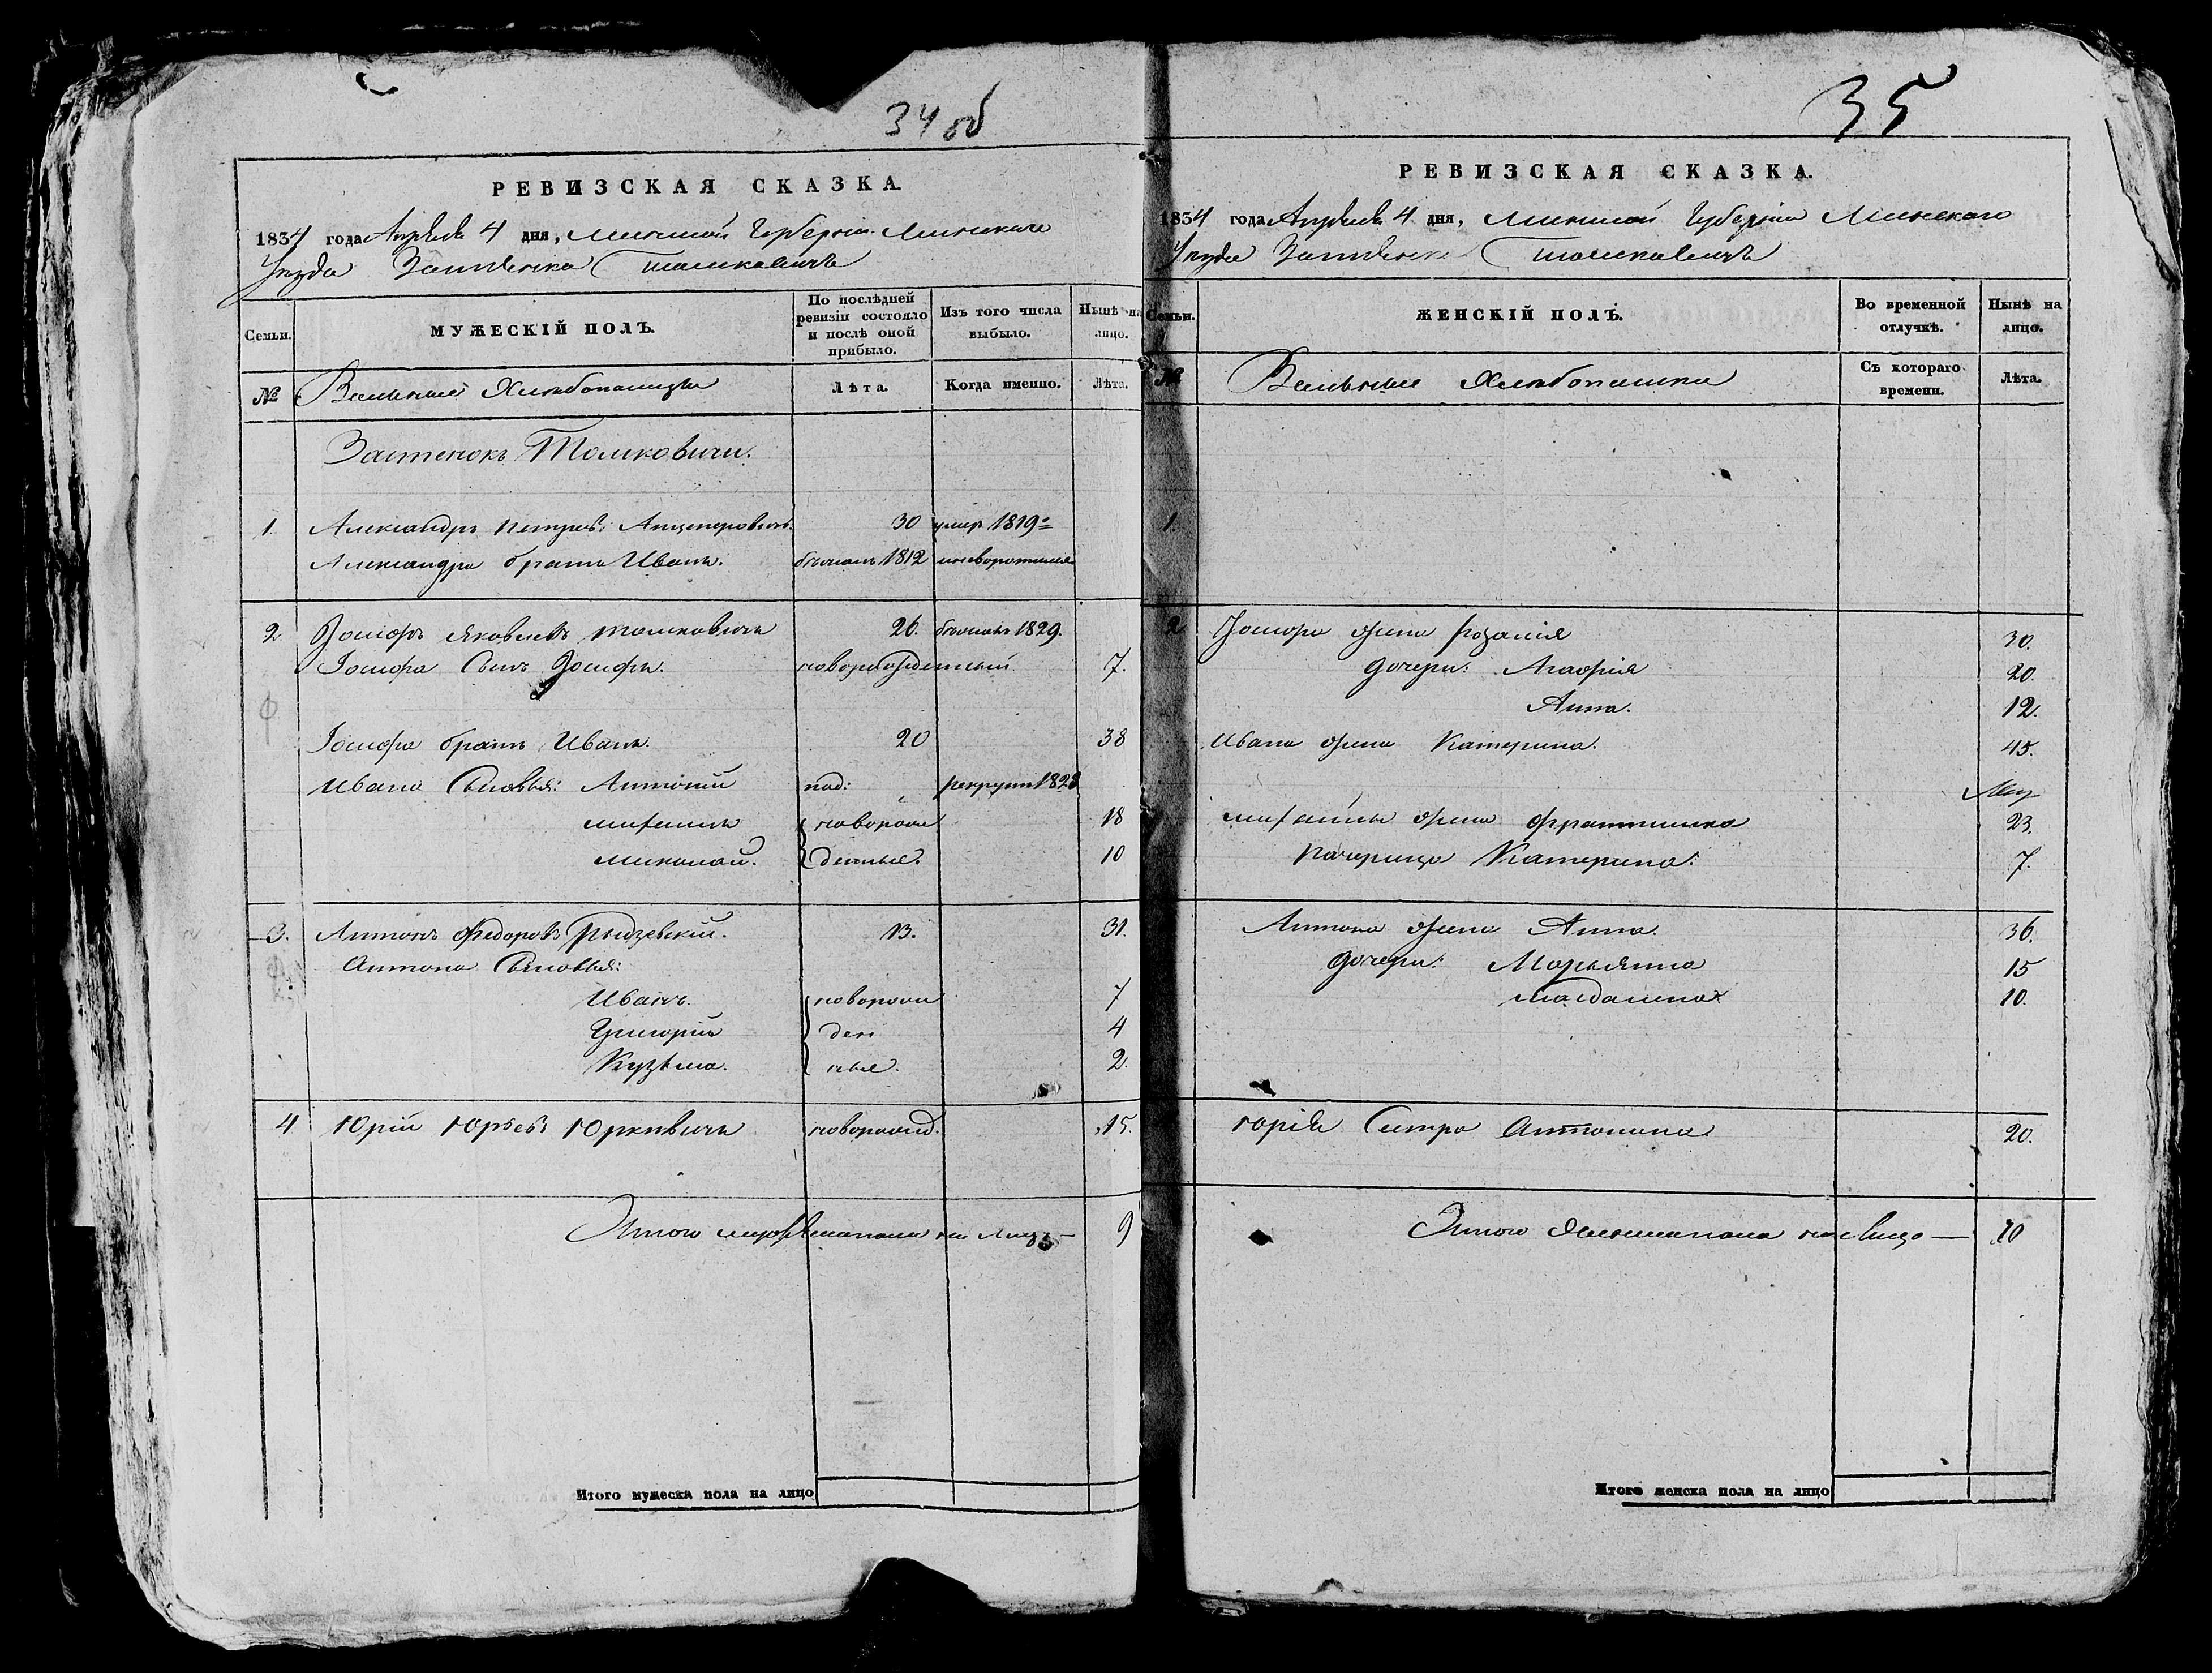 34 об
РЕВИЗСКАЯ СКАЗКА.
1834 года Апрѣля 4 дня, Минской Губерніи Минскаго
Уезда Застѣнка Томковичъ
Семьи.
МУЖЕСКІЙ ПОЛЪ.
По послѣдней ревизіи состояло и послѣ оной прибыло.
Изъ того числа выбыло.
Нынѣ на лицо.
№
Вольные Хлебопашцы
Лѣта.
Когда именно.
Лѣта.
Застенокъ Томковичи.
1. Александръ Петровъ 30 умер 1819
Александра братъ Иванъ. 1812
2 Іосифъ Яковлевъ Томковичъ 26. 1829.
Іосифа Сынъ Іосифъ. новорожденный 7.
Іосифа братъ Иванъ. 20 38
Ивана Сыновья: Антоній рекрутъ 1828
Михаилъ новорож 18
Миколай. денные. 10
3. Антонъ Федоровъ Рыдзевскій. 13. 31.
Антона Сыновья:
Иванъ. новорож 7
Григорій ден 4
Кузьма. ные. 2.
4 Юрій Юрьевъ Юркевичъ новорожд. 15.
Итого мужеска пола на лицо — 9
Итого мужеска пола на лицо
35
РЕВИЗСКАЯ СКАЗКА.
1834 года Апрѣля 4 дня, Минской Губерніи Минскаго
Уезда Застѣнка Томковичъ
Семьи.
ЖЕНСКІЙ ПОЛЪ.
Во временной отлучкѣ.
Нынѣ на лицо.
№
Вольные Хлебопашки
Съ котораго времени.
Лѣта.
1.
2 Іосифа жена Розалія 30.
дочери: Агафія 20.
Анна. 12.
Ивана жена Катерина. 45.
Михаила жена Франтишка 23.
Катерина. 7.
Антона жена Анна. 36.
дочери: Марьянна 15
Магдалина. 10.
Юрія Сестра Антонина. 20.
Итого женска пола на лицо — 10
Итого женска пола на лицо